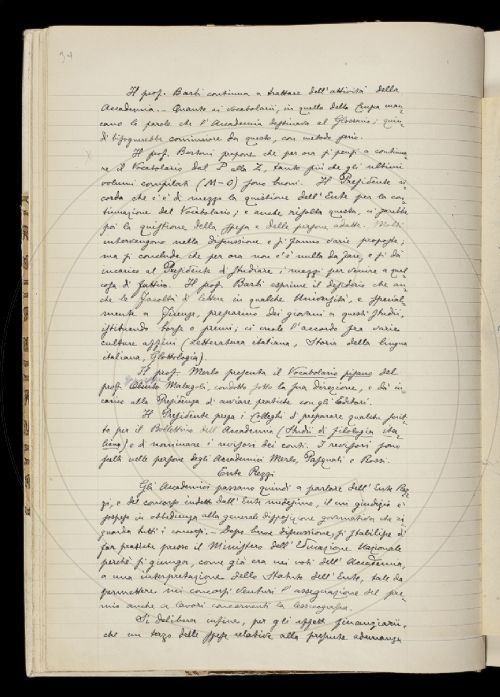 34
Il prof. Barbi continua a trattare dell'attività della
Accademia. - Quanto ai vocabolarii, in quello della Crusca man-
cano le parole che l'Accademia destinava al Glossario; quin-
di bisognerebbe cominciare da questo, con metodo però.
Il prof. Bertoni propone che per ora si pensi a continua-
re il Vocabolario dal P alla Z, tanto più che gli ultimi
volumi compilati (M-O) sono buoni. Il Presidente ri-
corda che c'è di mezzo la quistione dell'Ente per la con-
tinuazione del Vocabolario; e anche risolta questa, ci sarebbe
poi la quistione della spesa e delle persone adatte. Molti
intervengono nella discussione e si fanno varie proposte;
ma si conclude che per ora non c'è nulla da fare, e si dà
incarico al Presidente di studiare i mezzi per venire a qual
cosa di fattivo. Il prof. Barbi esprime il desiderio che an-
che le Facoltà di Lettere in qualche Università, e special-
mente a Firenze, preparino dei giovani a questi studi,
istituendo borse o premi; ci vuole l'accordo fra varie
culture affini (Letteratura italiana, Storia della lingua
italiana, Glottologia).
Il prof. Merlo presenta il Vocabolario pisano del
prof. Malagoli, condotto sotto la sua direzione, e dà in-
carico alla Presidenza d'avviare pratiche con gli Editori.
Il Presidente prega i Colleghi di preparare qualche scrit-
to per il Bollettino dell'Accademia (Studii di filologia ita-
liana) e di nominare i revisori dei conti. I revisori sono
scelti nelle persone degli Accademici Merlo, Pasquali e Rossi.
Ente Rezzi
Gli Accademici passano quindi a parlare dell'Ente Rez-
zi, e del concorso indetto dall'Ente medesimo, il cui giudizio è
sospeso in obbedienza alla generale disposizione governativa che ri-
guarda tutti i concorsi. - Dopo breve discussione, si stabilisce di
far pratiche presso il Ministero dell'Educazione Nazionale
perché si giunga, come già era nei voti dell'Accademia,
a una interpretazione dello Statuto dell'Ente, tale da
permettere nei concorsi venturi l'assegnazione del pre-
mio anche a lavori concernenti la lessicografia.
Si delibera infine, per gli effetti finanziarii,
che un terzo delle spese relative alla presente adunanza